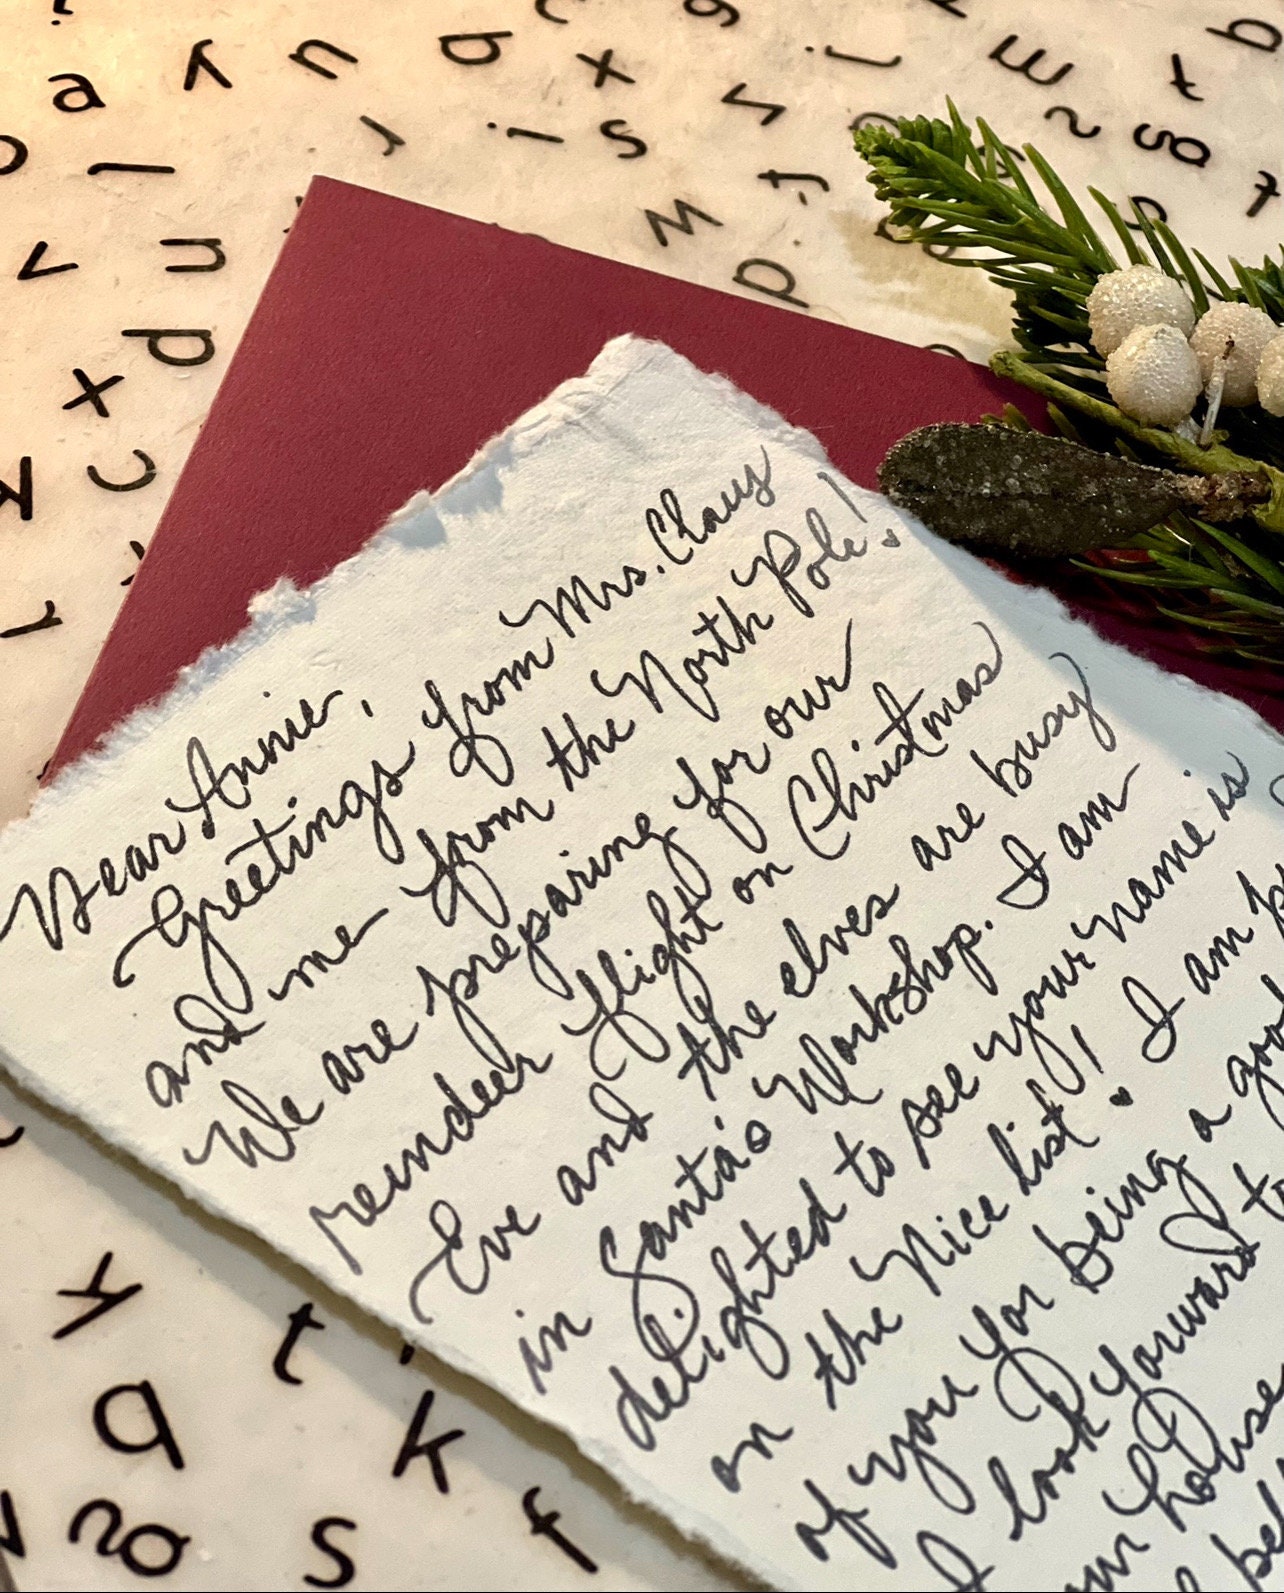 Dear Annie,
Greetings from Mrs. Claus
and me from the North Pole!
We are preparing for our
reindeer flight on Christmas
Eve and the elves are busy
in Santa's Workshop. I am
delighted to see your name is
on the Nice list! I am
of you for being a good
I look forward to
house